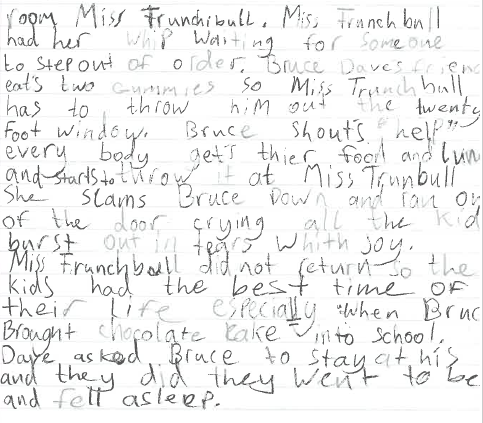 room Miss Trunchibull. Miss Trunchbull
had her whip waiting for someone
to step out of order. Bruce Daves frienc
eat's two gummies so Miss Trunchbull
has to throw him out the twenty
foot window. Bruce shout's "help"
every body get's thier food and lun
and starts to throw it at Miss Trunbull
She slams Bruce Down and ran ou
of the door crying all the kid
burst out in tears whith joy.
Miss Trunchbull did not return so the
kids had the best time of
their life especially when Bruc
Brought chocolate cake into school.
Dave asked Bruce to stay at his
and they did they went to be
and fell asleep.